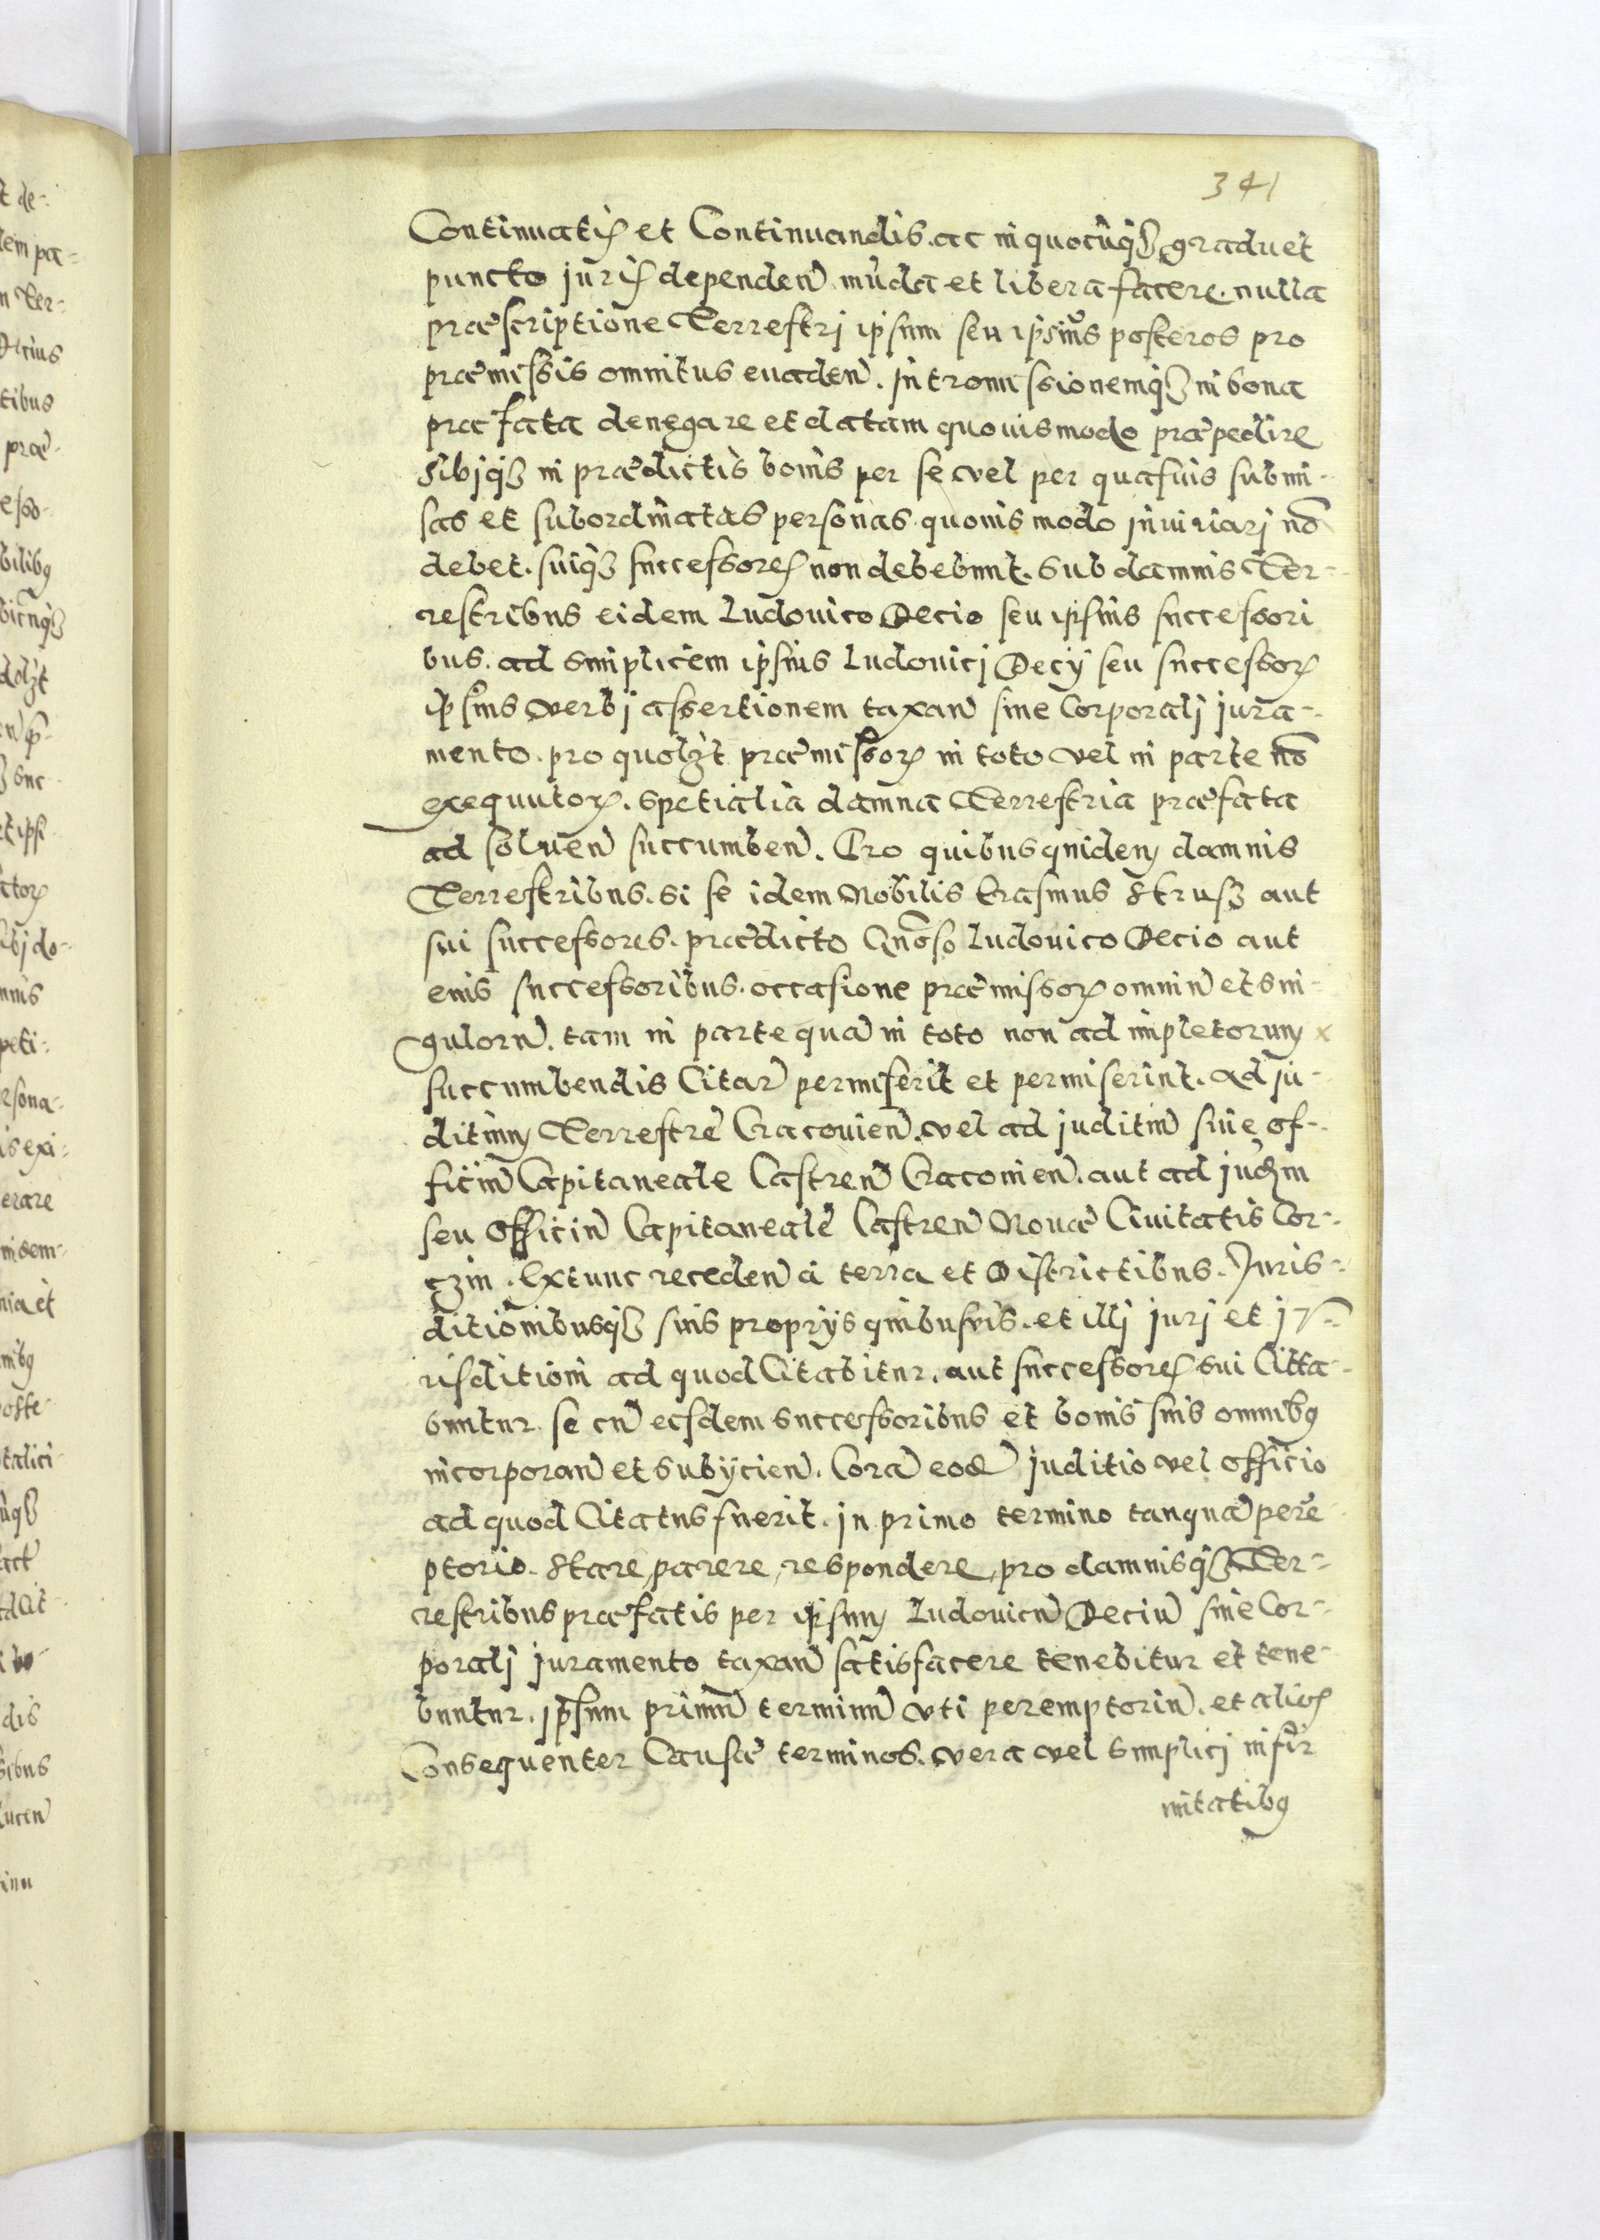 341
Continuatis et Continuandis. ac in quocūq₃ gradu et
puncto juris dependen̄ mūda et libera facere. nulla
præscriptione Terrestrj ipsum seu ipsius posteros pro
præmissis omnitus euaden̄. Intromissionemq₃ in bona
præfata denegare et datam quouismodo præpedire
sibjq₃ in prædictis bonis per se vel per quasuis submi-
sas et subordinatas personas quouis modo iniuriarj nō
debet. suiq₃ successores non debebunt. Sub damnis Ter-
restribus eidem Ludouico Decio seu ipsius successori
bus. ad simplicem ipsius Ludouicj Decÿ seu successorꝝ
ipsius verbj assertionem taxan̄ sine Corporalj jura-
mento. pro quolꝫt præmissorꝝ in toto vel in parte nō
exequutorꝝ. Spetialia damna Terrestria præfata
ad soluen̄ succumben̄. Pro quibus quidem damnis
Terrestribus. si se idem Nobilis Erasmus Strusz aut
sui successores. prædicto Gnōso Ludouico Decio aut
eius successoribus. occasione præmissorꝝ omniū et sin-
gulorū. tam in parte quā in toto non adimpletorum x
succumbendis Citar̄ permiserit et permiserint. Ad ju-
ditium Terrestrē Cracouien̄. vel ad juditiū siue of-
ficiū Capitaneale Castren̄ Cracouien̄. aut ad judm
seu officiū Capitanealē Castren̄ Nouæ Ciuitatis Cor-
czin. Extunc receden̄ a terra et Districtibus. Juris-
ditionibusq₃ suis proprÿs quibusvis. et illj jurj et ju-
risditioni ad quod Citabitur. aut successores sui Citta-
buntur. se cū eisdem Successoribus et bonis suis omnibꝯ
incorporan̄ et subÿcien̄. Corā eodē juditio vel officio
ad quod Citatus fuerit. in primo termino tanquā perē
ptorio. Stare, parere, respondere, pro damnisq₃ Ter-
restribus præfatis per ipsum Ludouicū Deciū sine Cor-
poralj juramento taxan̄ satisfacere tenebitur et tene-
buntur. ipsum primū terminū vti peremptoriū. et alios
Consequenter Causæ terminos. vera vel simplicj infir
mitatibꝯ